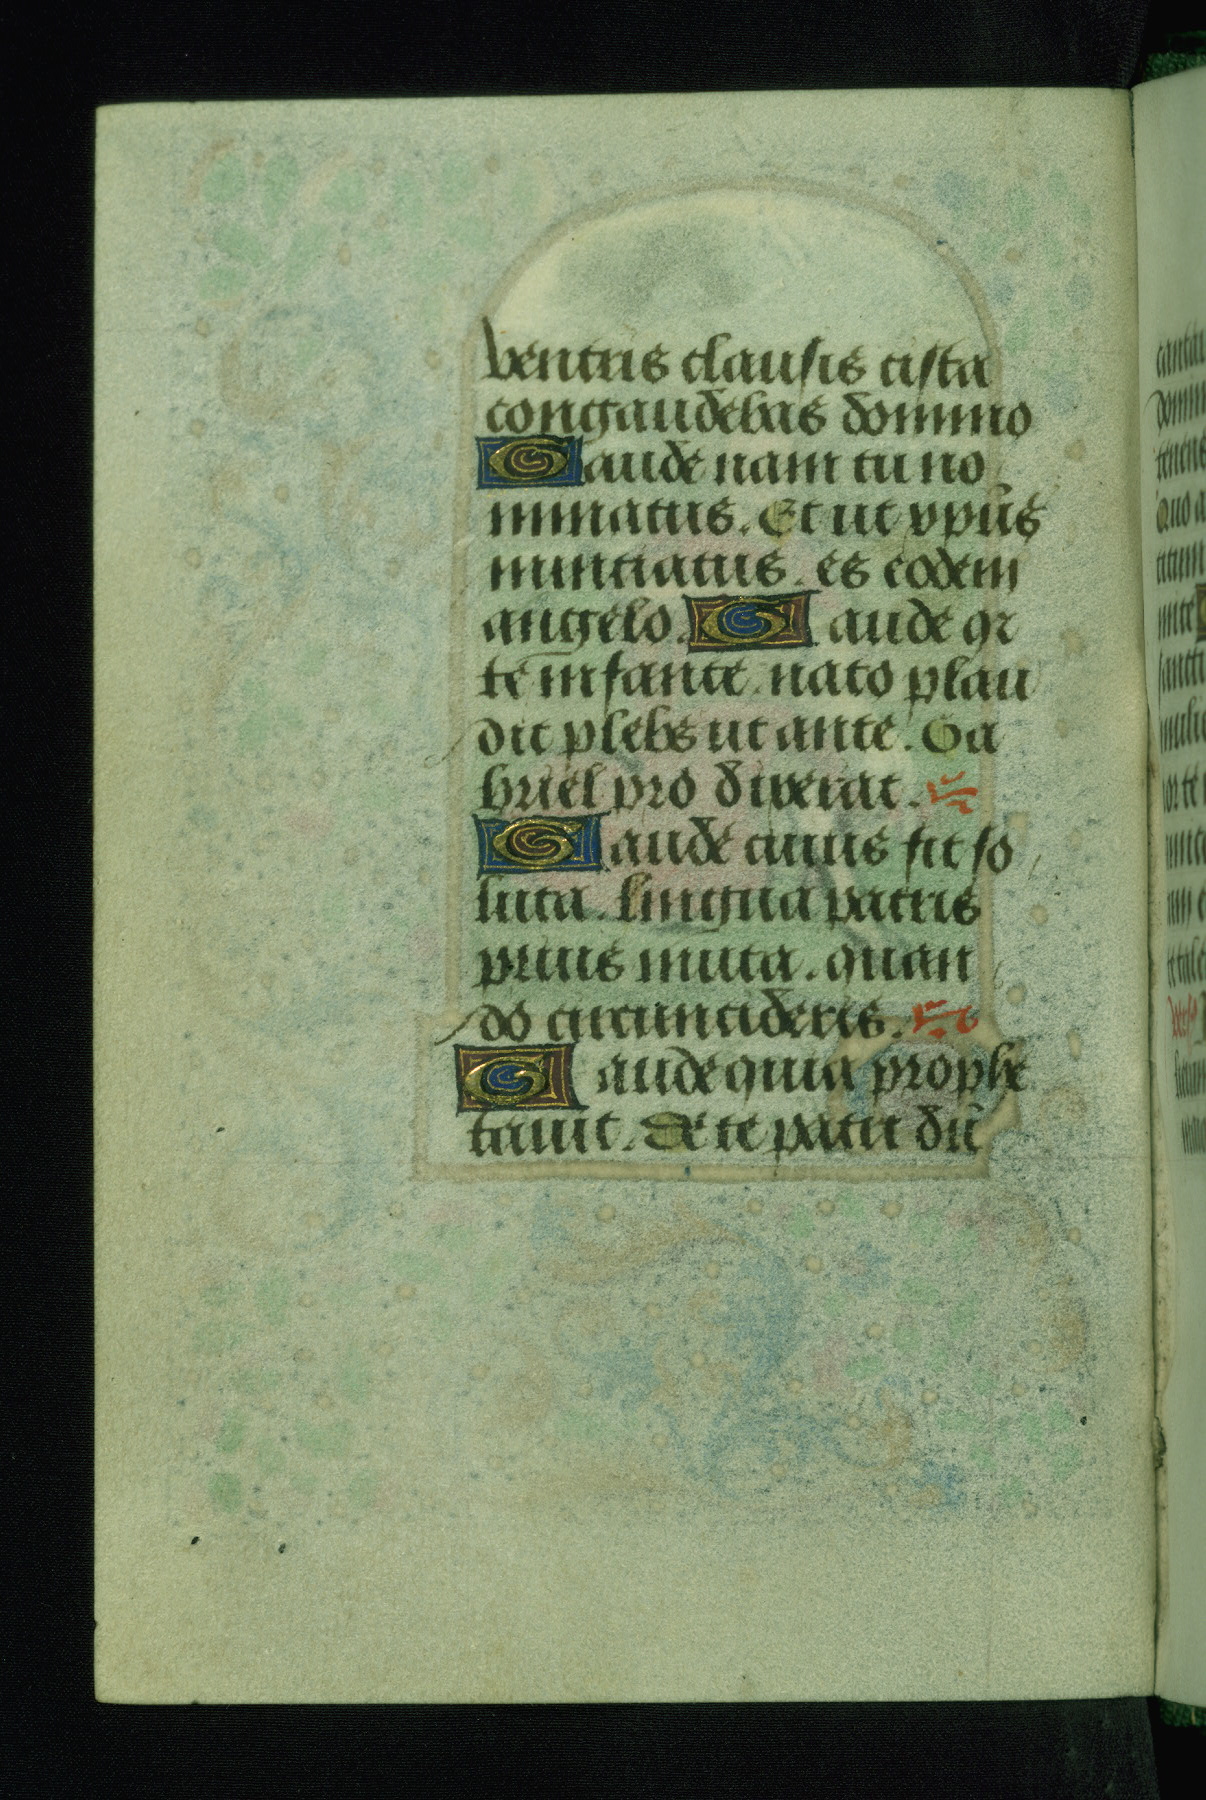 ventris clausis cista
congaudebas domino
Gaude nam tu no
minatus. Et ut xpūs
nuntiatus. es eodem
angelo. Gaude qr
te infante. nato plau
dit plebs ut ante. Ga
briel pro dixerat.
Gaude cuius fit so
luta. lingua patris
prius muta. quan
do circuncideris.
Gaude quia prophe
tavit. De te pater dū